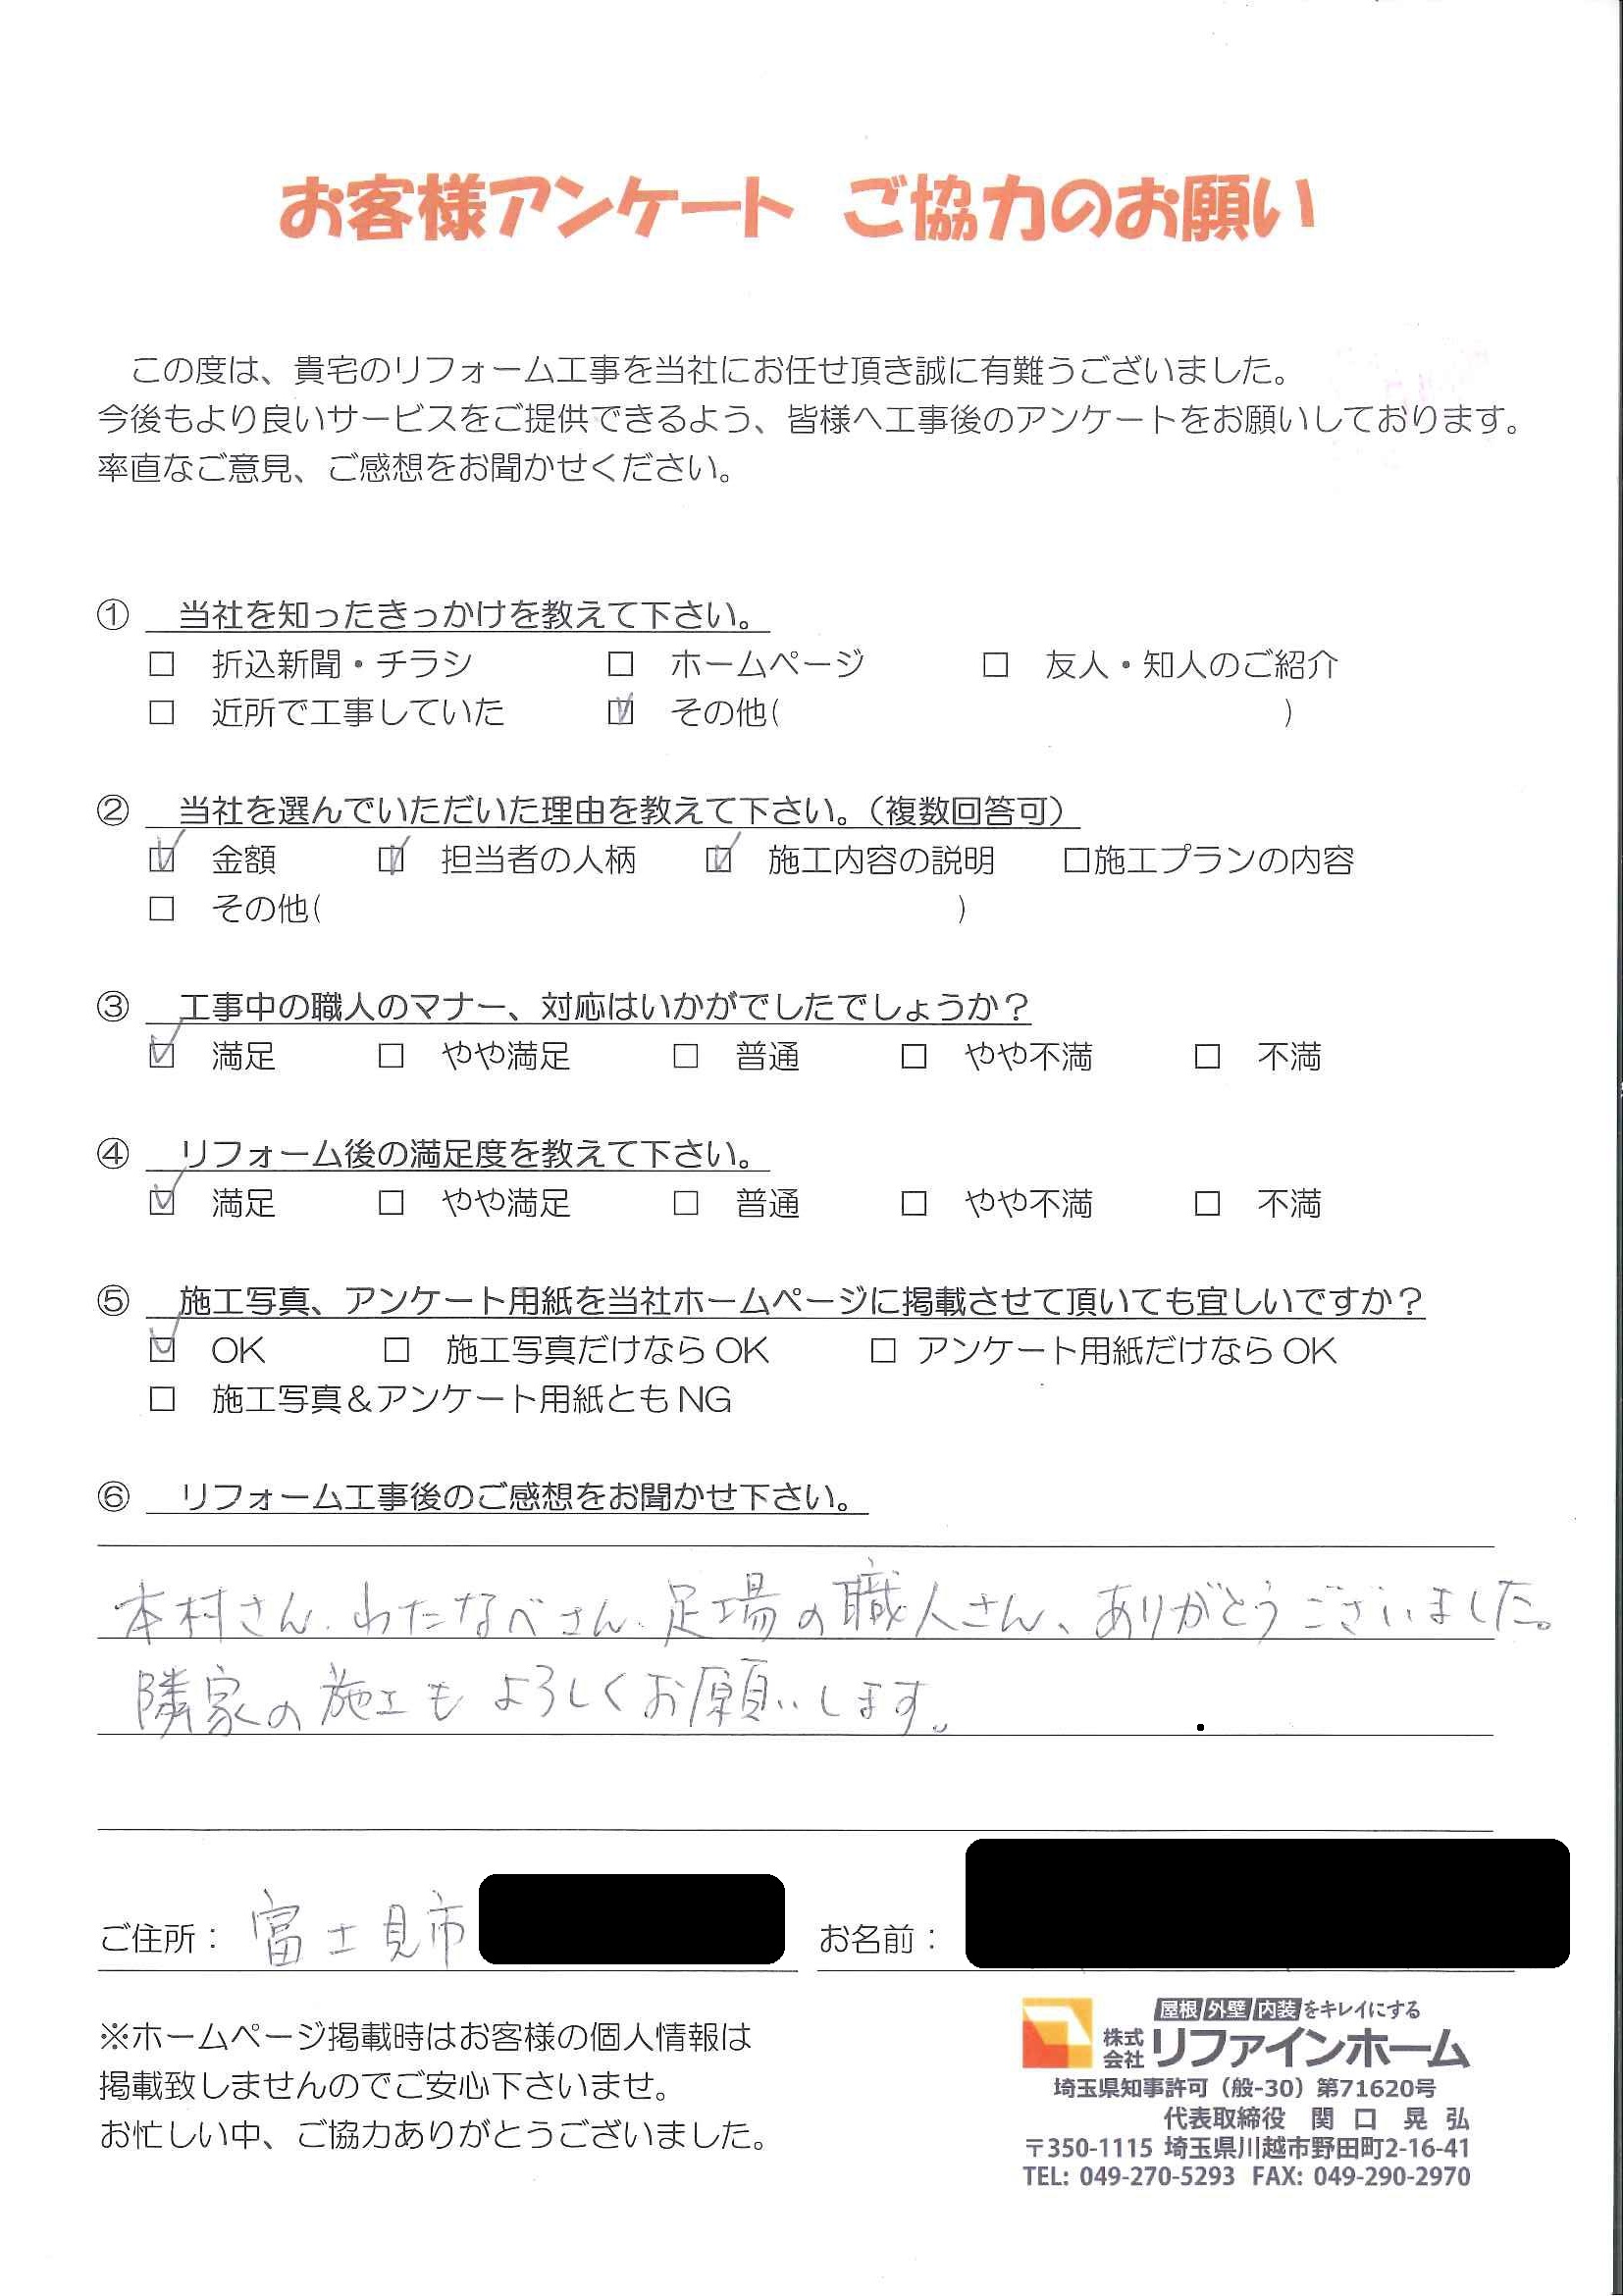 お客様アンケート ご協力のお願い
この度は、貴宅のリフォーム工事を当社にお任せ頂き誠に有難うございました。
今後もより良いサービスをご提供できるよう、皆様へ工事後のアンケートをお願いしております。
率直なご意見、ご感想をお聞かせください。
① 当社を知ったきっかけを教えて下さい。
□ 折込新聞・チラシ □ ホームページ □ 友人・知人のご紹介
□ 近所で工事していた ☑ その他( )
② 当社を選んでいただいた理由を教えて下さい。（複数回答可）
☑ 金額 ☑ 担当者の人柄 ☑ 施工内容の説明 □施工プランの内容
□ その他( )
③ 工事中の職人のマナー、対応はいかがでしたでしょうか？
☑ 満足 □ やや満足 □ 普通 □ やや不満 □ 不満
④ リフォーム後の満足度を教えて下さい。
☑ 満足 □ やや満足 □ 普通 □ やや不満 □ 不満
⑤ 施工写真、アンケート用紙を当社ホームページに掲載させて頂いても宜しいですか？
☑ OK □ 施工写真だけならOK □ アンケート用紙だけならOK
□ 施工写真＆アンケート用紙ともNG
⑥ リフォーム工事後のご感想をお聞かせ下さい。
本村さん、わたなべさん、足場の職人さん、ありがとうございました。
隣家の施工もよろしくお願いします。
ご住所： 富士見市 お名前：
※ホームページ掲載時はお客様の個人情報は
掲載致しませんのでご安心下さいませ。
お忙しい中、ご協力ありがとうございました。
屋根 外壁 内装をキレイにする
株式会社 リファインホーム
埼玉県知事許可（般-30）第71620号
代表取締役 関口 晃弘
〒350-1115 埼玉県川越市野田町2-16-41
TEL: 049-270-5293 FAX: 049-290-2970